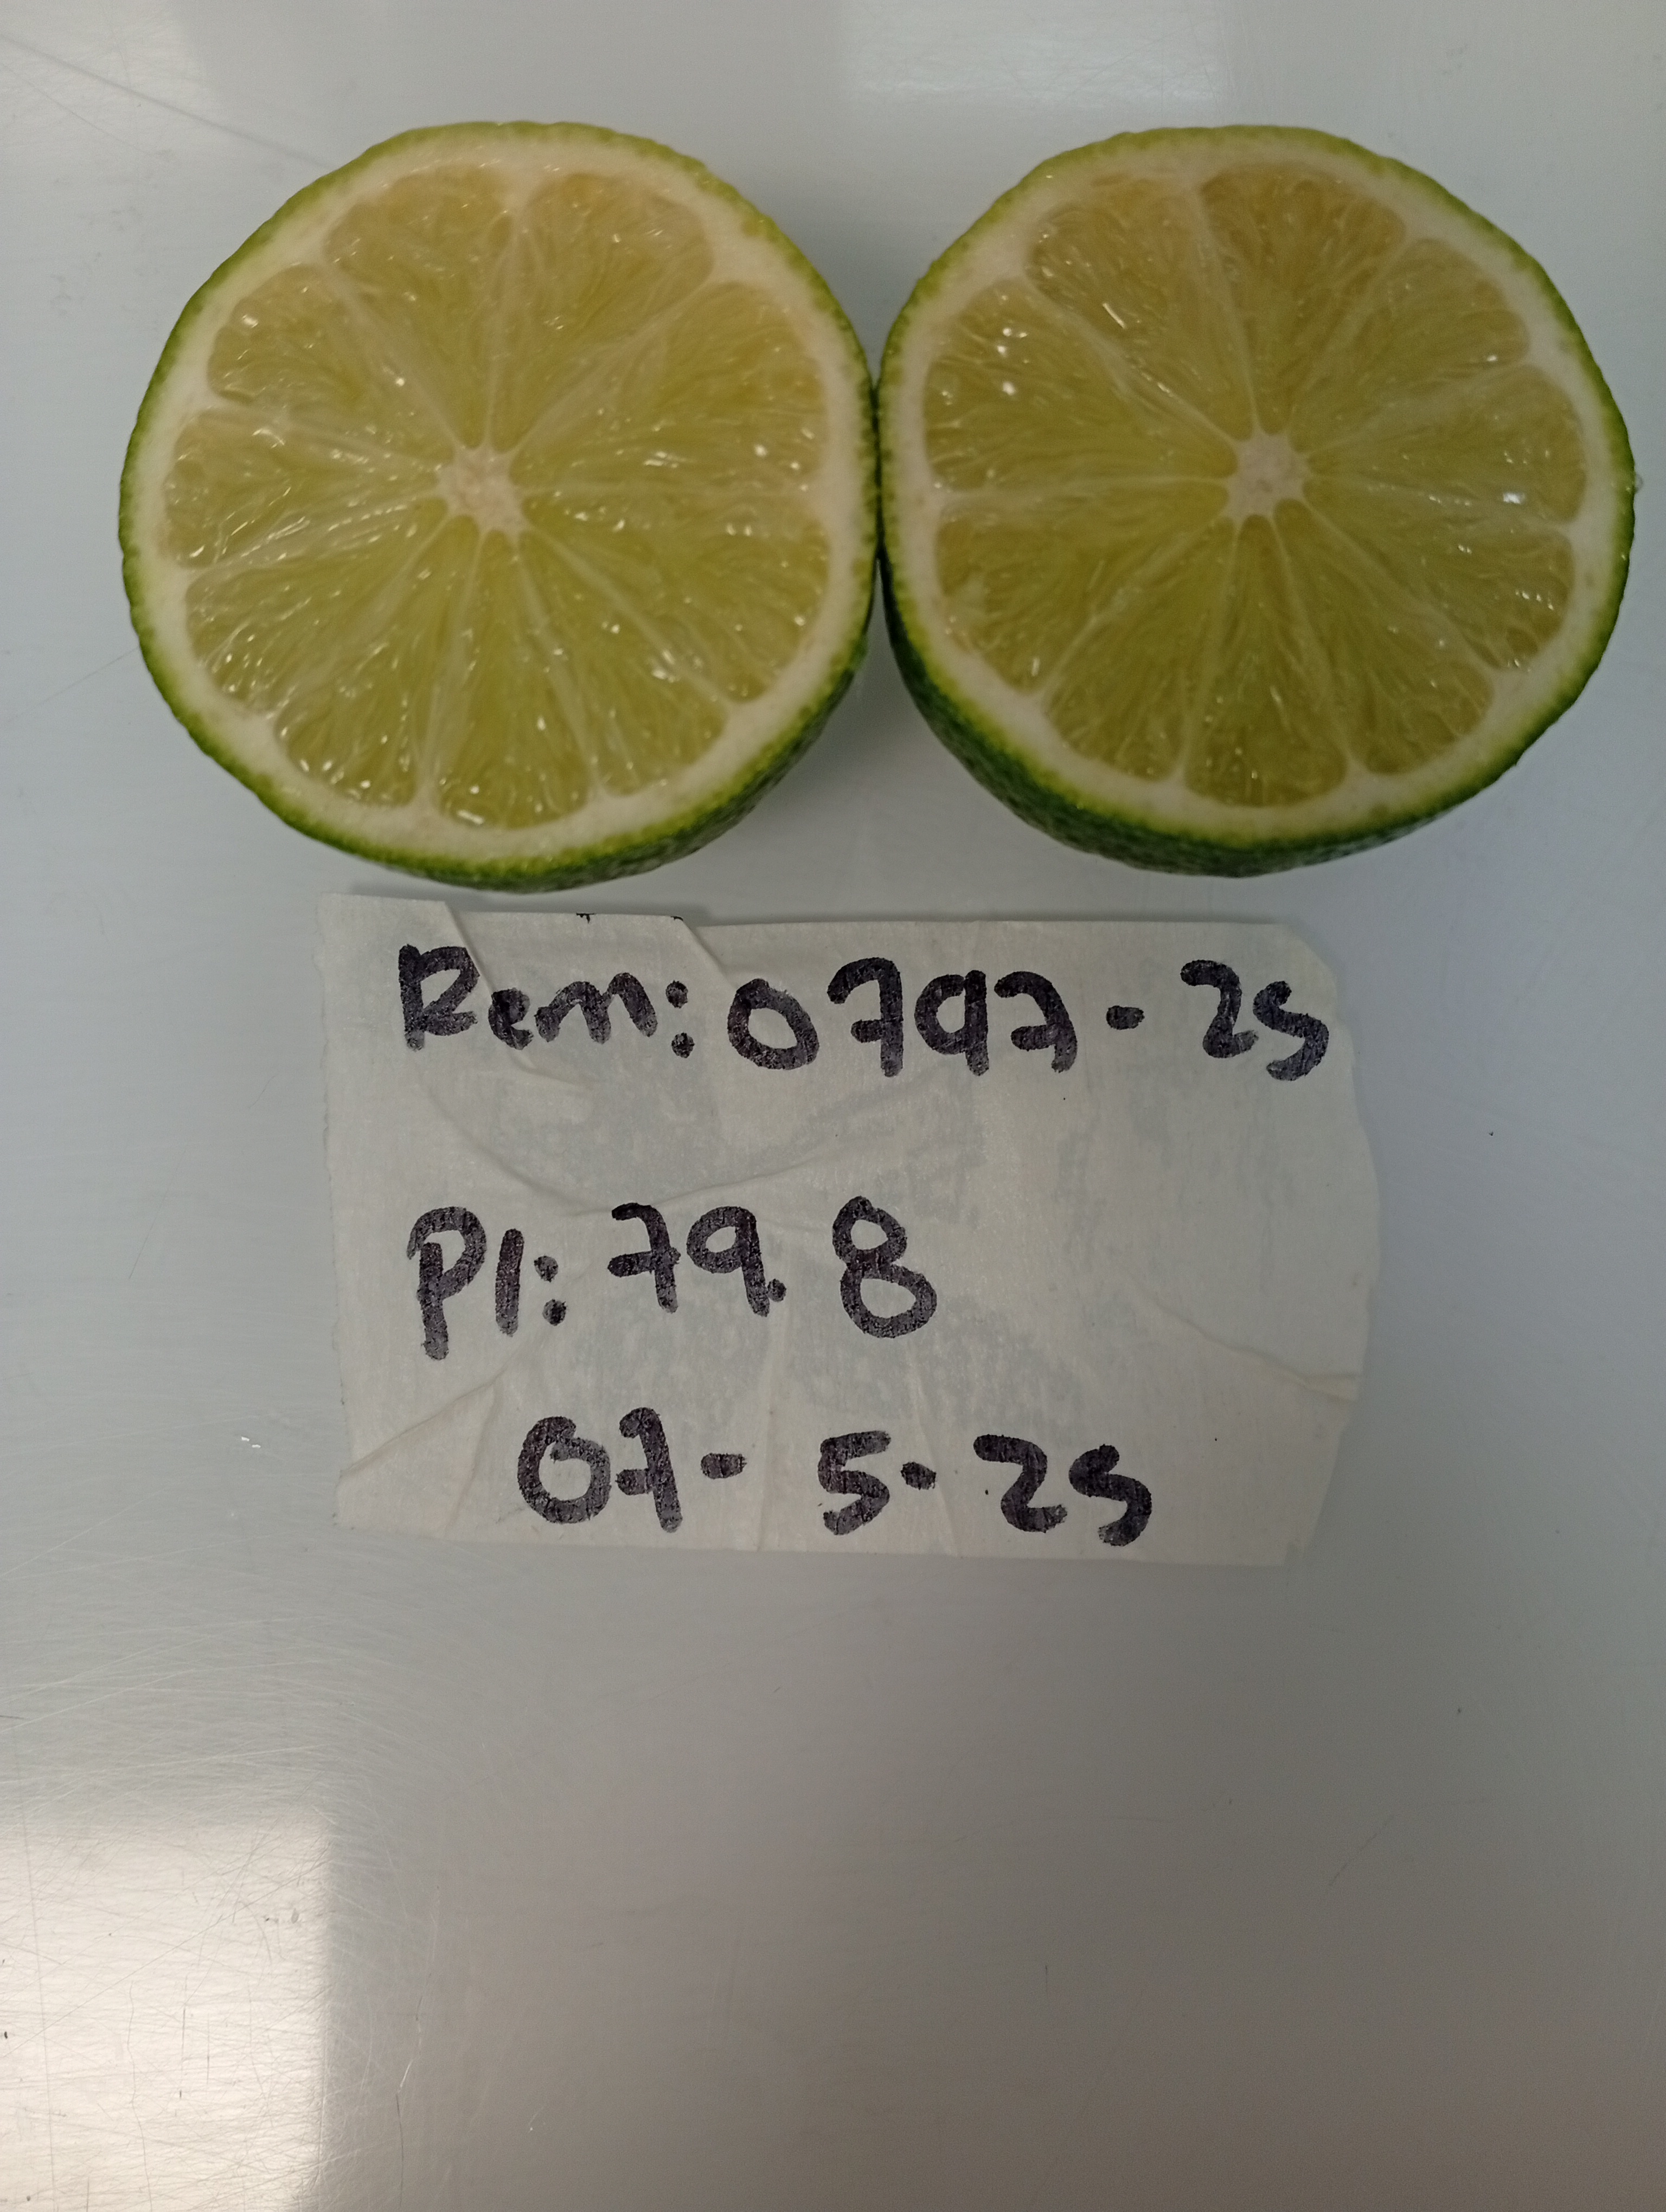 Rem: 0797-25
P1: 79.8
07-5-25